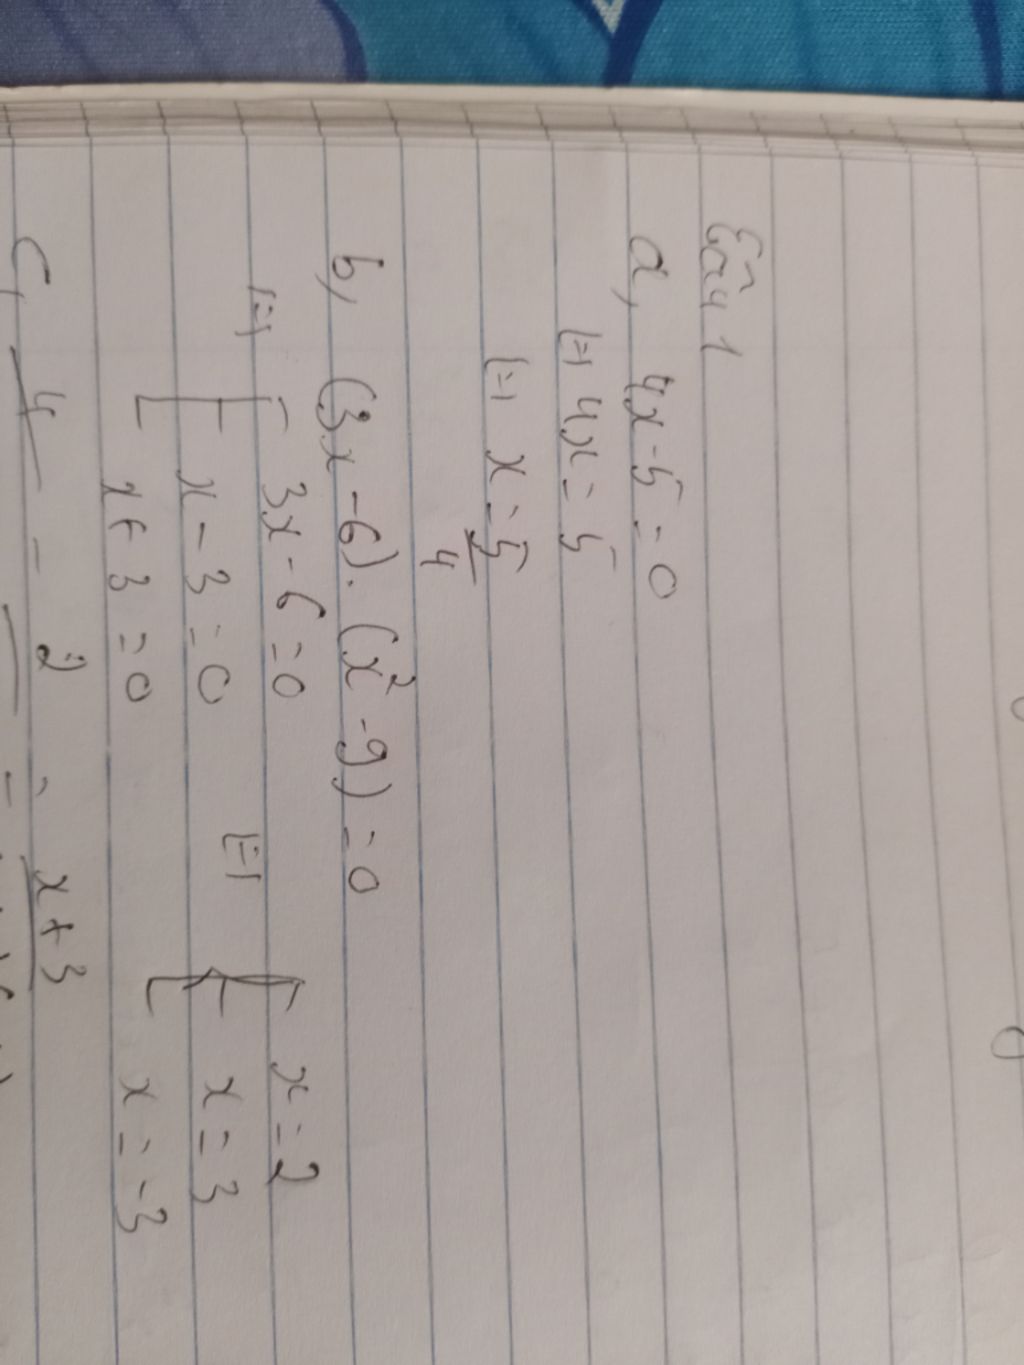 Câu 1
a, 4x - 5 = 0
⇔ 4x = 5
⇔ x = 5/4
b, (3x - 6). (x² - 9) = 0
⇔ [ 3x - 6 = 0 ⇔ [ x = 2
x - 3 = 0 x = 3
x + 3 = 0 x = -3
c, 4 - 2 x + 3